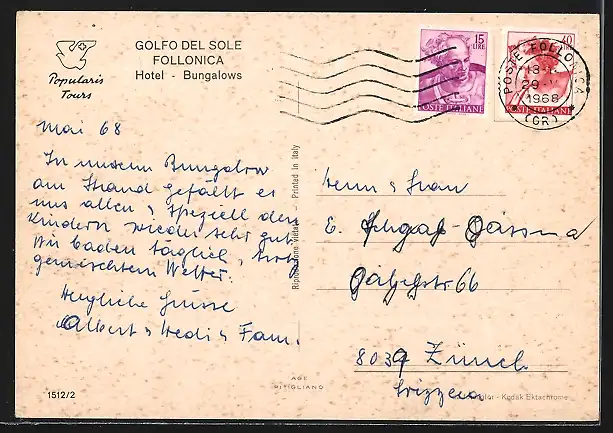 GOLFO DEL SOLE
FOLLONICA
Hotel - Bungalows
Popularis
Tours
15
LIRE
POSTE ITALIANE
40
LIRE
POSTE ITALIANE
POSTE FOLLONICA
1968
(GR)
Mai 68
In unserem Bungalow
am Strand gefällt es
uns allen & speziell den
Kindern wieder sehr gut.
Wir baden täglich, trotz
gemischtem Wetter.
Herzliche Grüsse
Albert & Hedi & Fam.
Riproduzione Vietata - Printed in Italy
Herrn & Frau
E.
66
8039 Zürich
Svizzera
AGE
PITIGLIANO
Kodak Ektachrome
1512/2